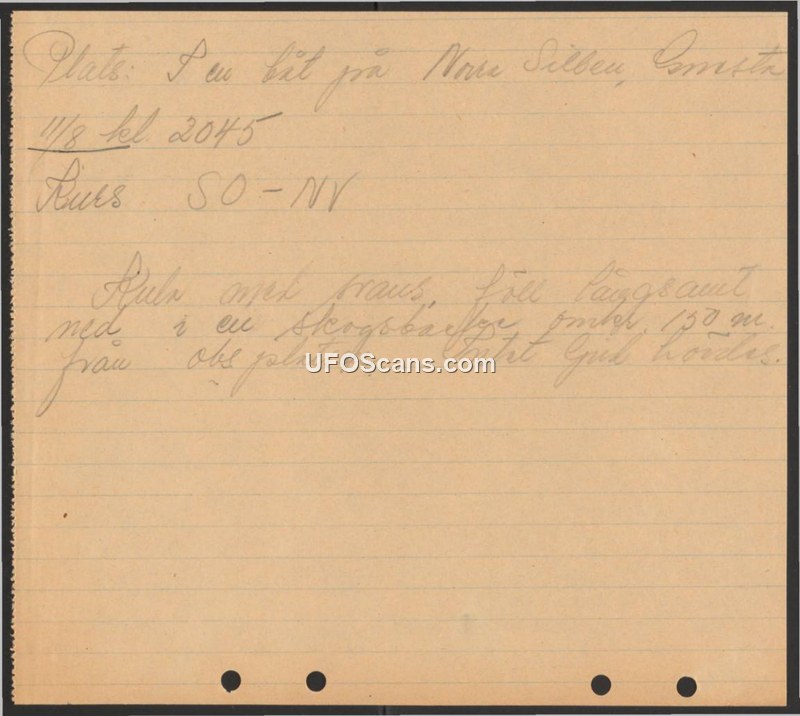 Plats: I en båt på Norra Sillen, Gnesta
11/8 kl. 2045
Kurs SO - NV
Kula med svans, föll långsamt
ned i en skogsbacke omkr. 150 m.
från obs platsen. Intet ljud hördes.
UFOScans.com